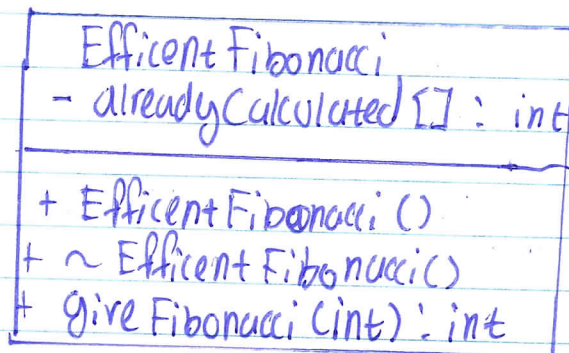 Efficent Fibonacci
- alreadyCalculated [] : int
+ Efficent Fibonacci ()
+ ~ Efficent Fibonacci()
+ give Fibonacci (int) : int